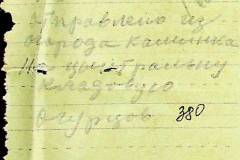 отправлено из
огорода каминка
на центральну
кладовую
огурцов 380